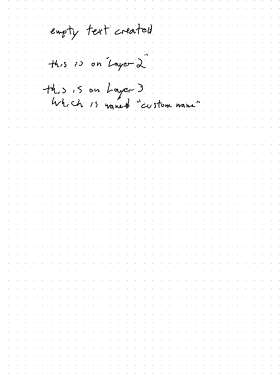 empty text created
this is on "Layer 2"
this is on Layer 3
Which is named "custom name"